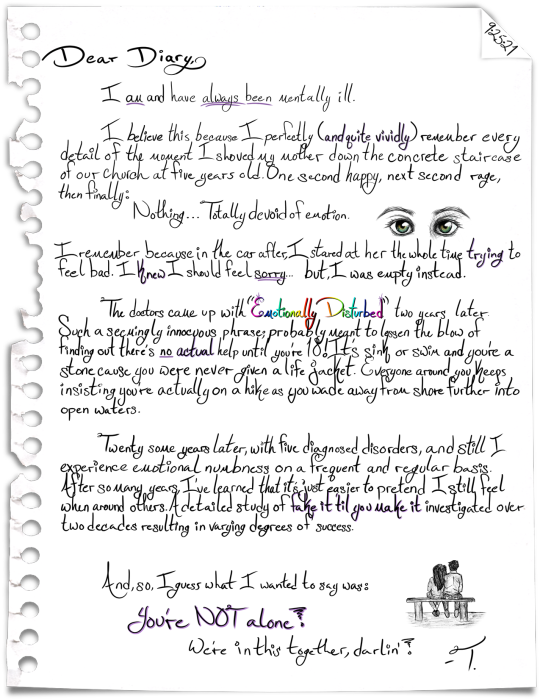 92521
Dear Diary,
I am and have always been mentally ill.
I believe this because I perfectly (and quite vividly) remember every
detail of the moment I shoved my mother down the concrete staircase
of our church at five years old. One second happy, next second rage,
then finally:
Nothing... Totally devoid of emotion.
I remember because in the car after, I stared at her the whole time trying to
feel bad. I knew I should feel sorry... but, I was empty instead.
The doctors came up with "Emotionally Disturbed" two years later.
Such a seemingly innocuous phrase; probably meant to lessen the blow of
finding out there's no actual help until you're 18! It's sink or swim and you're a
stone cause you were never given a life jacket. Everyone around you keeps
insisting you're actually on a hike as you wade away from shore further into
open waters.
Twenty some years later, with five diagnosed disorders, and still I
experience emotional numbness on a frequent and regular basis.
After so many years, I've learned that it's just easier to pretend I still feel
when around others. A detailed study of fake it til you make it investigated over
two decades resulting in varying degrees of success.
And, so, I guess what I wanted to say was:
You're NOT alone!
We're in this together, darlin'!
-T.